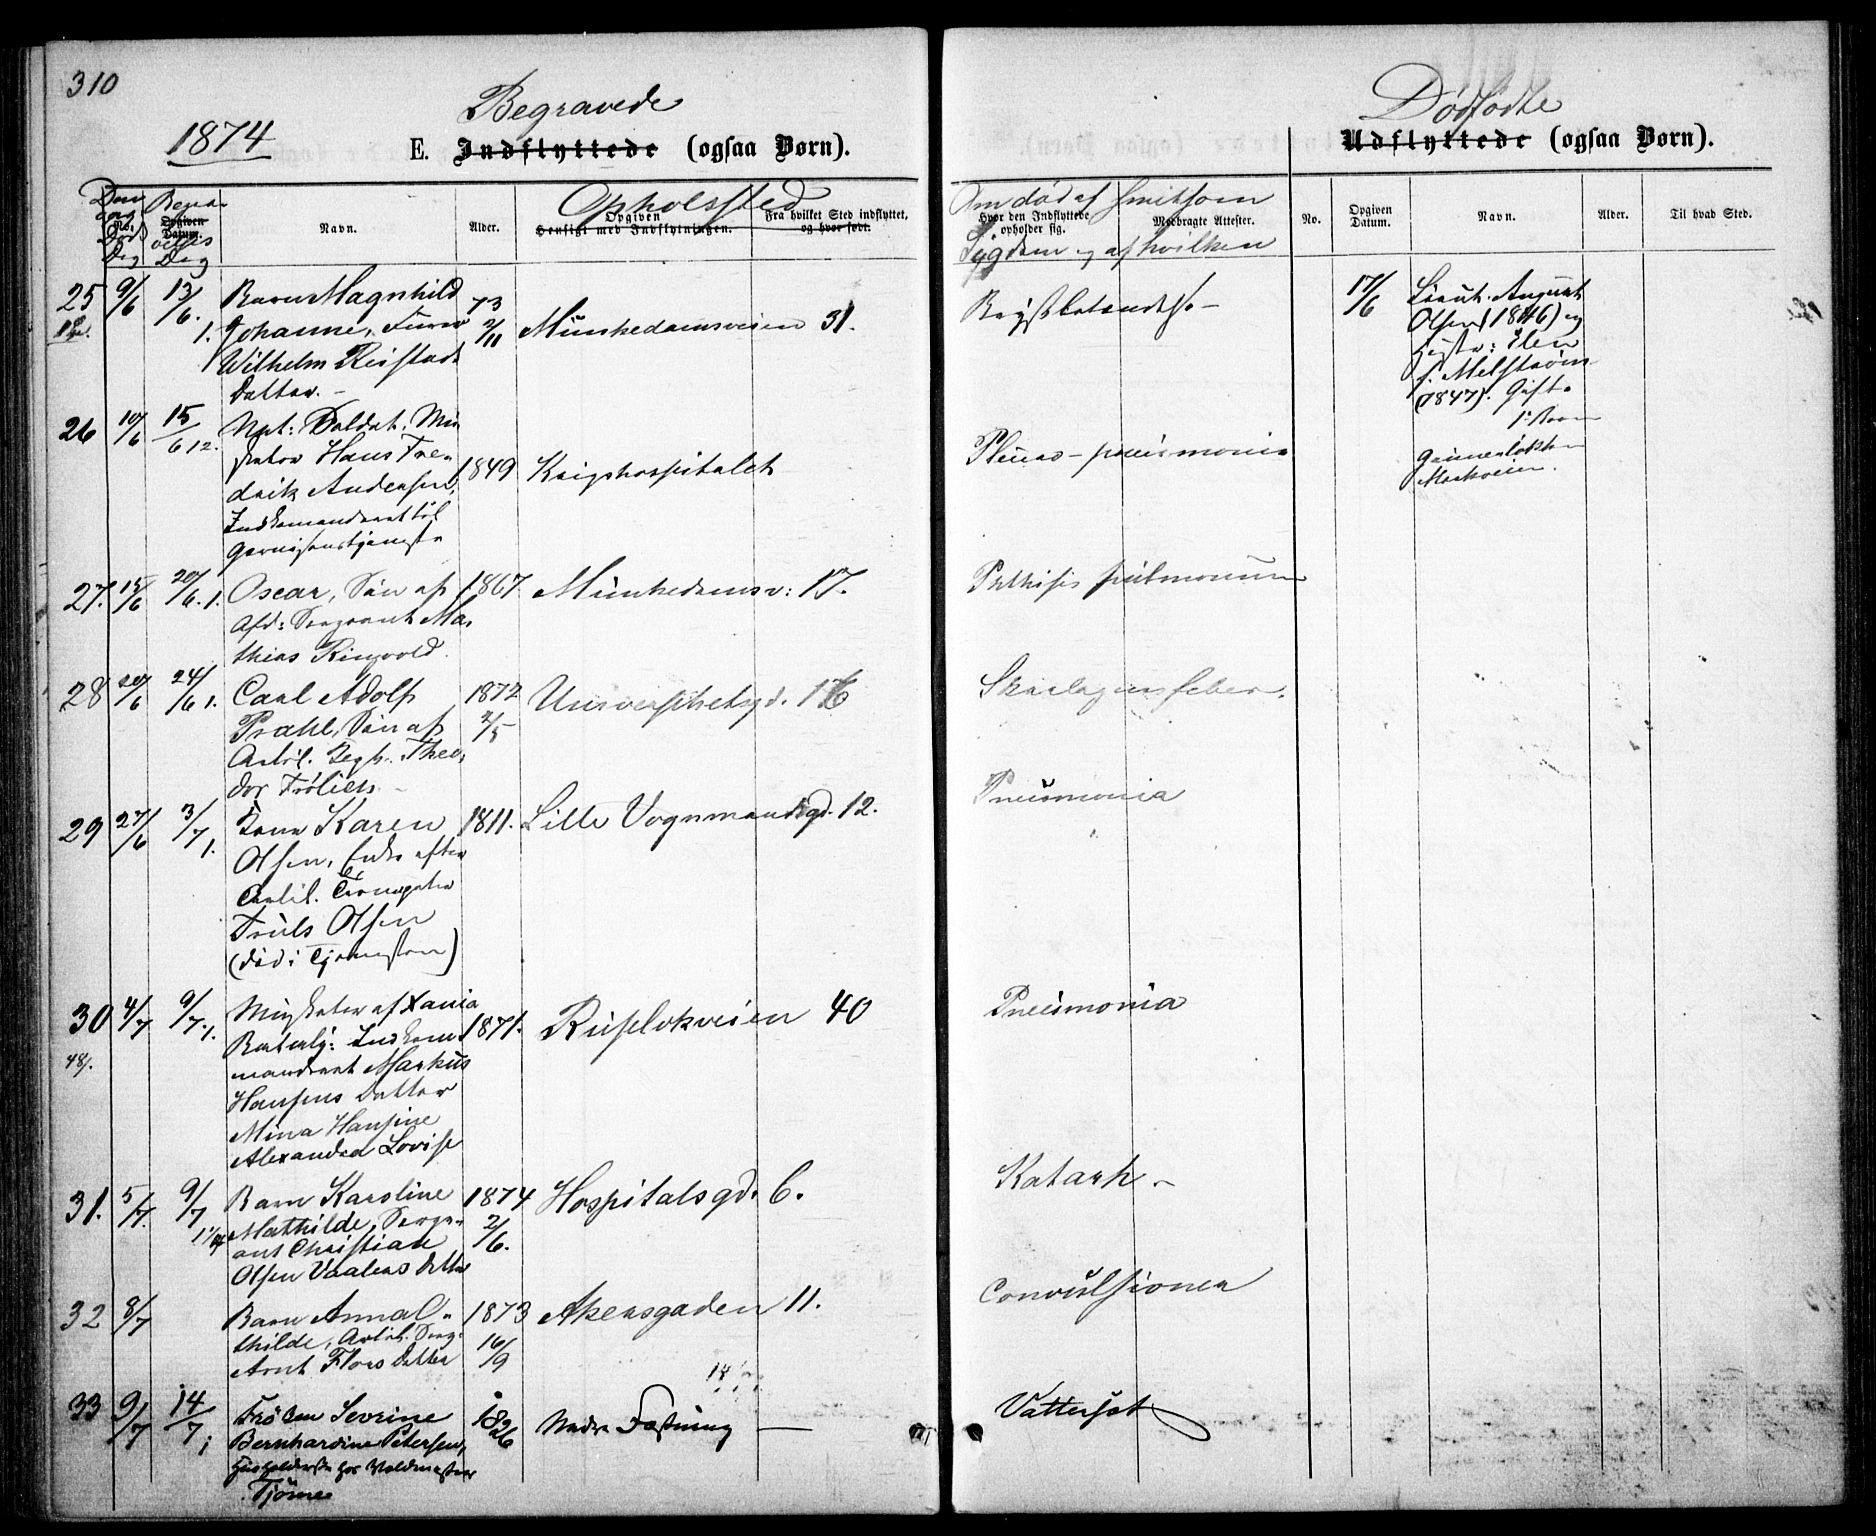 310
Begravede
1874
E. Indflyttede (ogsaa Børn).
Dødfødte
Udflyttede (ogsaa Børn).
Døds Dag
No.
Begravelses Dag
Opgiven Datum.
Navn.
Alder.
Opholssted
Opgiven Hensigt med Indflytningen.
Fra hvilket Sted indflyttet, og hvor født.
Om død af smitsom
Sygdom og af hvilken
Hvor den Indflyttede opholder sig.
Medbragte Attester.
No.
Opgiven Datum.
Navn.
Alder.
Til hvad Sted.
25 9/6 13/6. 1. Barn Magnhild
Johanne, Furer
Wilhelm Reistads
Datter. –
73 2/11
Munkedamsveien 31.
Brystbetændelse –
17/6
Lieut. August
Olsen (1846) og
Hustr: Elen
f. Melstrøm
(1847). Gift.
Grünerløkken
Markveien.
26 10/6 15/6 12. Npt: Soldat. Mu
sketer Hans Fre-
drik Andersen,
Indkomanderet til
Garnisonstjeneste
1849 Krigshospitalet
Pleuro-pneumonia
27. 15/6 20/6. 1. Oscar, Søn af
Afd: Sergeant Ma-
thias Ringvold.
1867. Munkedamsv: 17.
Phthisis pulmonum
28 20/6 24/6 1. Carl Adolf
Prahl, Søn af
Artil. Theo-
dor Frølich –
1872 2/5
Universitetsgd. 16
Skarlagensfeber.
29 27/6 3/7 1. Kone Karen
Olsen, Enke efter
Artil.
Truls Olsen
(død i Tjenesten)
1811. Lille Vognmandsgd. 12.
Pneumonia
30 4/7 9/7. 1. Musketer af Xania
Bataly: Indkom-
manderet Markus
Hansens Datter
Mina Hansine
Alexandra Lovise
48/.
1871. Ruseløkveien 40
Pneumonia
31. 5/7. 9/7 Barn Karoline
Mathilde, Serge-
ant Christian
Olsen Vaalens Datter
1874 2/6.
Hospitalsgd. 6.
Katarh. –
32 8/7 Barn Anna
thilde, Artil. Serg.
Arnt Flors Datter
1873 16/9
Akersgaden 11.
Convulsioner
33 9/7 14/7 Frøken Sevrine
Bernhardine Petersen,
Husholderske hos Voldmester
Tjøme
1826 Nedre Fæstning —
Vattersot